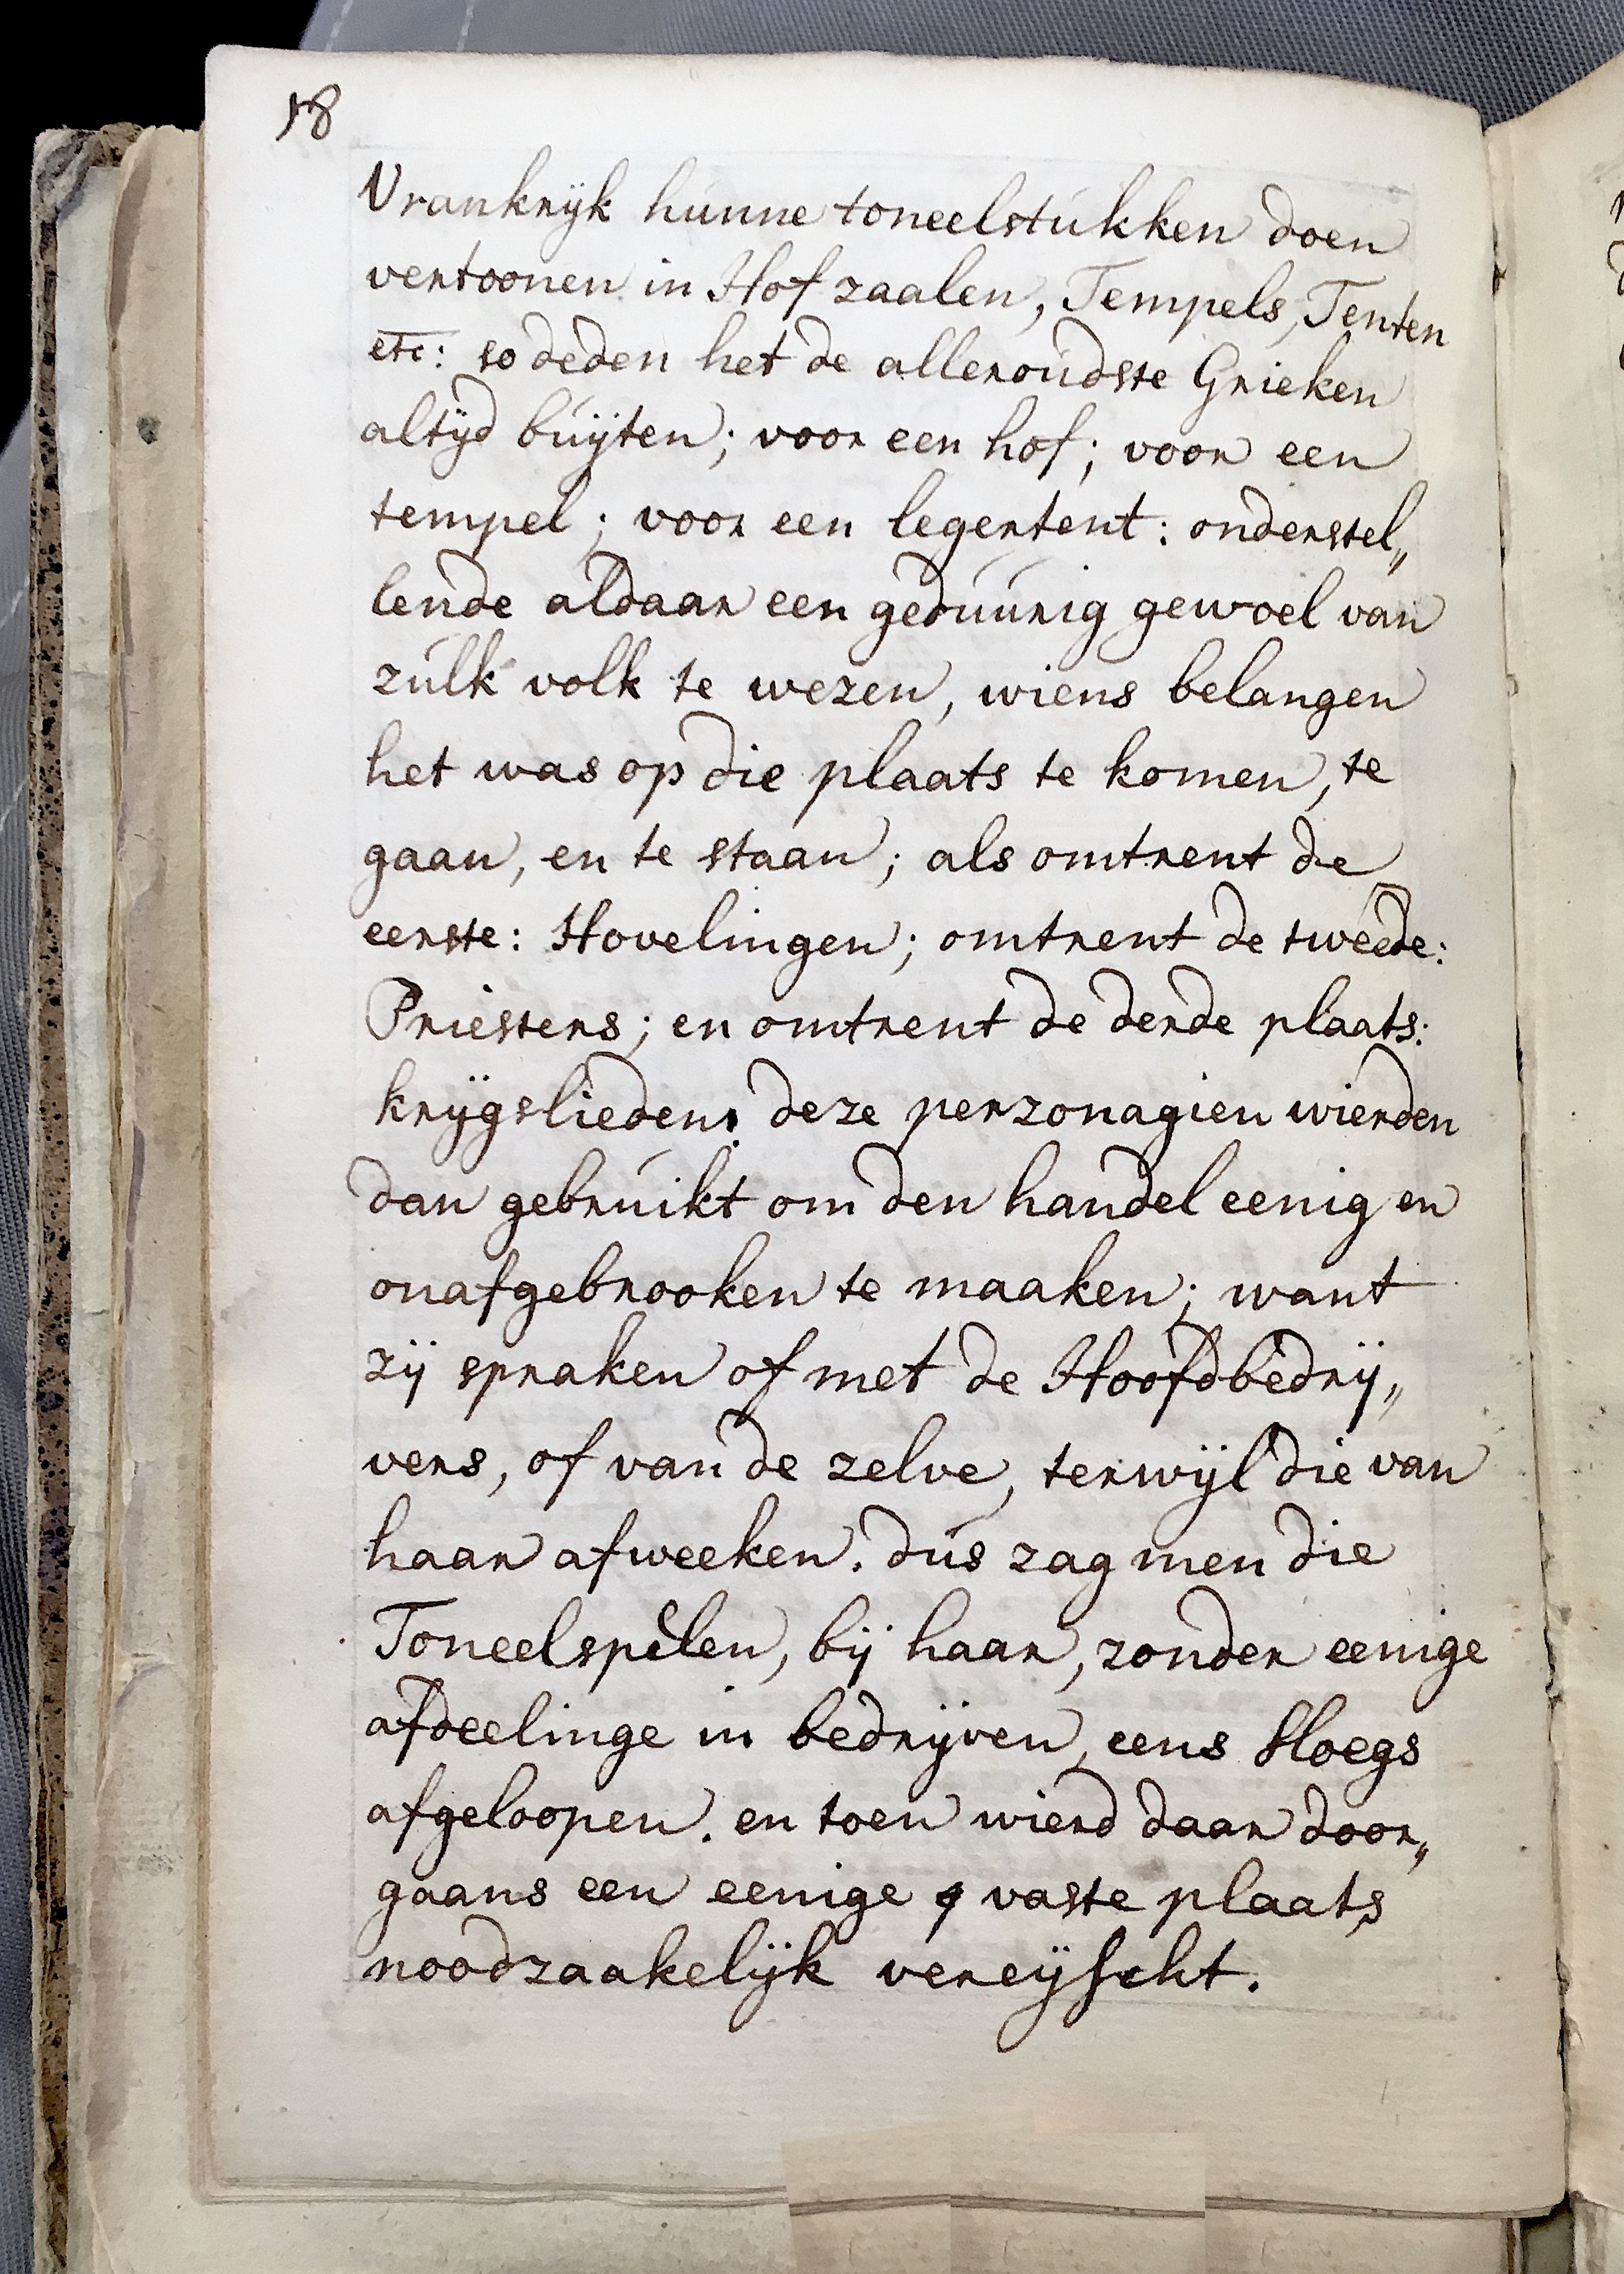 18
Vrankryk hunne toneelstukken doen
vertoonen in Hof zaalen, Tempels, Tenten
etc: so deden het de alleroudste Grieken
altyd buyten; voor een hof; voor een
tempel; voor een legertent: onderstel„
lende aldaar een geduurig gewoel van
zulk volk te wezen, wiens belangen
het was op die plaats te komen, te
gaan, en te staan; als omtrent de
eerste: Hovelingen; omtrent de tweede:
Priesters; en omtrent de derde plaats:
krygslieden: deze perzonagien wierden
dan gebruikt om den handel eenig en
onafgebrooken te maaken; want
zij spraken of met de Hoofdbedrij„
vers, of van de zelve, terwijl die van
haar afweeken. dus zag men die
Toneelspelen, bij haar, zonder eenige
afdeelinge in bedrijven, eens sloegs
afgeloopen. en toen wierd daar door„
gaans een eenige vaste plaats
noodzaakelijk vereijscht.